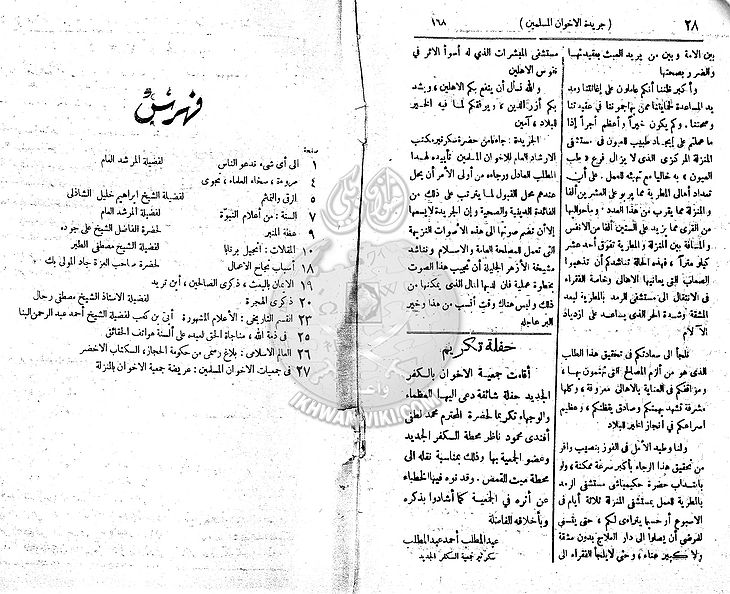 ٢٨
( جريدة الاخوان المسلمين )
١٦٨
بين الامة وبين من يريد العبث بعقيدتها
والضرر بصحتها
وأكبر ظننا أنكم عاملون على إغاثتنا ومد
يد المساعدة لحمايتنا ممن يهاجموننا في عقيدتنا
وصحتنا . وكم يكون خيراً وأعظم أجراً إذا
ما عملتم على إيجاد طبيب للعيون فى مستشفى
المنزلة المركزى الذى لا يزال فرع طب
العيون به خاليا مع تهيئته للعمل . على أن
تعداد أهالى المطرية مما يربو على العشرين ألفا
والمنزلة مما يقرب من هذا العدد ، وماحواليها
من القرى مما يزيد على الستين ألفا من الانفس
والمسافة بين المنزلة والمطرية تفوق أحد عشر
كيلو متراً ، فهذه الحالة تناشدكم أن تذهبوا
الصعاب التى يعانيها الاهالى وخاصة الفقراء
فى الانتقال الى مستشفى الرمد بالمطرية لبعد
المشقة وشدة الحر الذى يساعد على ازدياد
الآلام
فلجأ الى سعادتكم فى تحقيق هذا الطلب
الذى هو من ألزم المصالح التى تهتمون بها ،
ومواقفكم فى العناية بالاهالى معروفة ، وكلها
مشرفة تشهد بهمتكم وصادق يقظتكم ، وعظيم
اسراعكم في انجاز الخير للبلاد
ولنا وطيد الأمل فى الفوز بنصيب وافر
من تحقيق هذا الرجاء بأكبر سرعة ممكنة ، ولو
بانتداب حضرة حكيمباشى مستشفى الرمد
بالمطرية للعمل بمستشفى المنزلة ثلاثة أيام فى
الاسبوع أو حسبما يتراءى لكم ، حتى يتسنى
للمرضى أن يصلوا الى دار العلاج بدون مشقة
ولا كبير عناء ، وحتى لا يلجأ الفقراء الى
مستشفى المبشرات الذي له أسوأ الاثر فى
نفوس الاهلين
والله نسأل أن ينفع بكم الاهلين ، ويشد
بكم أزر الدين ، ويوفقكم لما فيه الخير
للبلاد ، آمين
الجريدة : جاءنا من حضرة سكرتير مكتب
الارشاد العام للاخوان المسلمين تأييده لهذا
الطلب العادل ورجاءه من أولى الأمر أن يحل
عندهم محل القبول لما يترتب على ذلك من
الفائدة الدينية والصحية وإن الجريدة لا يسعها
إلا أن تضم صوتها الى هذه الأصوات النزيهة
التى تعمل للمصلحة العامة والاسلام ونناشد
مشيخة الأزهر الجليلة أن تجيب هذا الصوت
بخطوة عملية فان لديها المال الذى يمكنها من
ذلك وليس هناك وقت أنسب من هذا وخير
البر عاجله
حفلة تكريم
أقامت جمعية الاخوان بالكفر
الجديد حفلة شائقة دعى اليها العظماء
والوجهاء تكريما لحضرة المحترم محمد لطفى
أفندى محمود ناظر محطة الكفر الجديد
وعضو الجمعية بها وذلك بمناسبة نقله الى
محطة ميت القمص . وقد نوه فيها الخطباء
عن أثره في الجمعية كما أشادوا بذكره
وبأخلاقه الفاضلة
عبد المطلب أحمد عبد المطلب
سكرتير جمعية الكفر الجديد
فهرس
صفحة
١ الى أى شىء ندعو الناس لفضيلة المرشد العام
٤ مرهومة ، سخاء العلماء ، نجوى
٥ الرقى والتمائم لفضيلة الشيخ ابراهيم خليل الشاذلى
٧ السنة : من أعلام النبوة لفضيلة المرشد العام
٩ عظة المنبر لحضرة الفاضل الشيخ على جوده
١٠ المقالات : انجيل برنابا لفضيلة الشيخ مصطفى الطير
١٨ أسباب نجاح الاعمال لحضرة صاحب العزة جاد المولى بك
١٩ الايمان بالبعث ، ذكرى الصالحين ، ابن تريد
٢٠ ذكرى الهجرة لفضيلة الاستاذ الشيخ مصطفى رحال
٢٣ القسم التاريخى : الأعلام المشهورة أبى بن كعب لفضيلة الشيخ أحمد عبد الرحمن البنا
٢٥ فى ذمة الله ، مناجاة الحق لعبده على ألسنة هواتف الحقائق
٢٦ العالم الاسلامى : بلاغ رسمى من حكومة الحجاز ، الكتاب الاخضر
٢٧ فى جمعيات الاخوان المسلمين : عريضة جمعية الاخوان بالمنزلة
IKHWANWIKI.COM